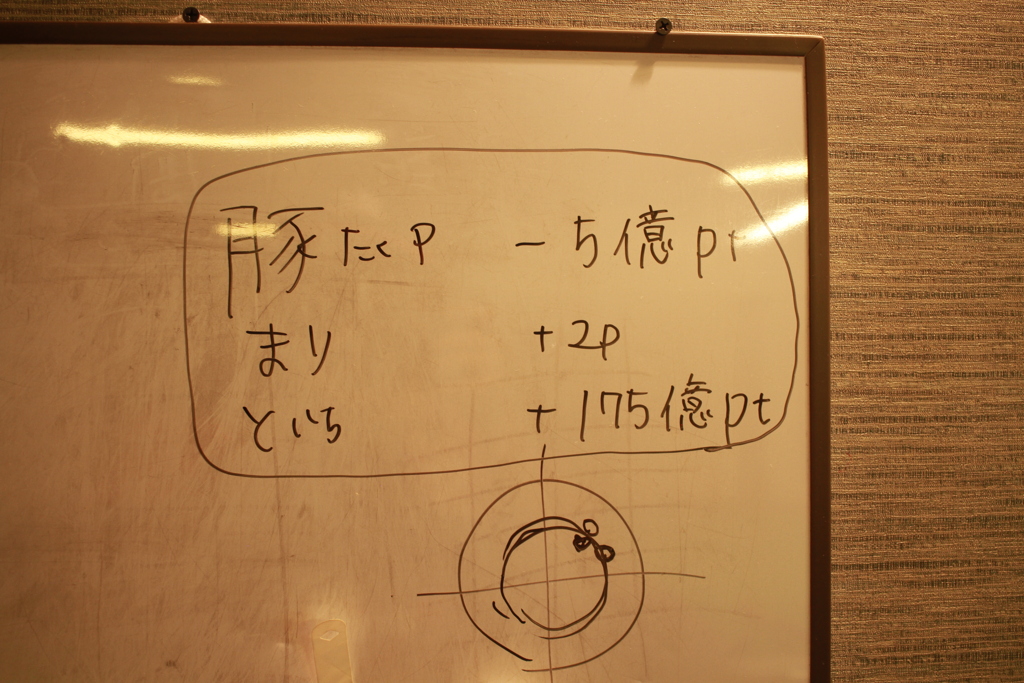 豚たくP －5億pt
まり ＋2p
といち ＋175億pt